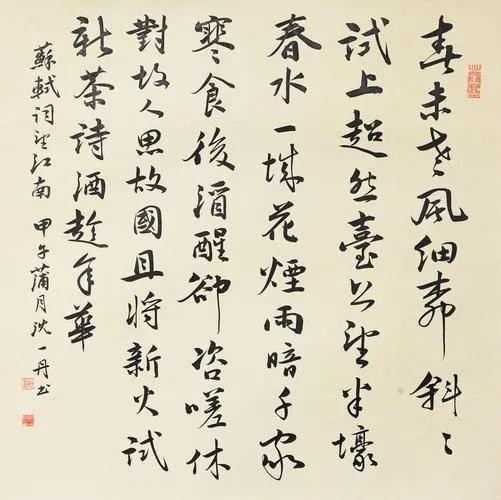 春未老風細柳斜〻
試上超然臺上望半壕
春水一城花煙雨暗千家
寒食後酒醒卻咨嗟休
對故人思故國且將新火試
新茶詩酒趁年華
蘇軾詞望江南 甲午蒲月沈一丹書